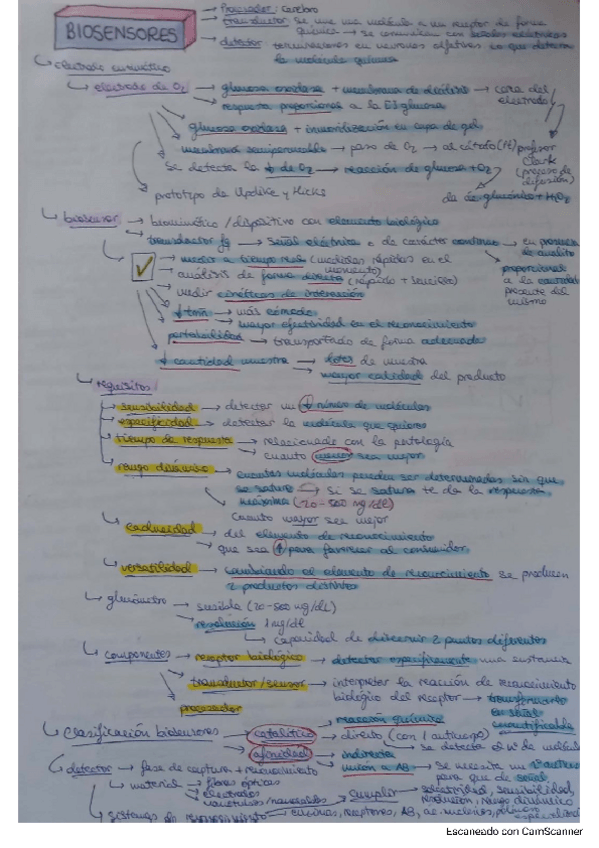 → Procesador: cerebro
BIOSENSORES → transductor: se une una molécula a un receptor de forma
química → se comunican con señales eléctricas
→ detector terminaciones en neuronas olfativas lo que detecta
la molécula química
↳ electrodo enzimático
↳ electrodo de O₂ → glucosa oxidasa + membrana de diálisis → cara del
electrodo
→ respuesta proporcional a la [] glucosa
glucosa oxidasa + inmovilización en capa de gel
membrana semipermeable → paso de O₂ → al cátodo (Pt) profesor
Clark
Se detecta la ↓ de O₂ → reacción de glucosa + O₂ (proceso de
difusión)
prototipo de Updike y Hicks da ác. glucónico + H₂O₂
↳ biosensor → biomimético / dispositivo con elemento biológico
→ transductor fq → señal eléctrica o de carácter continuo → en presencia
de analito
✓ → medir a tiempo real (medidas rápidas en el
momento) proporcional
→ análisis de forma directa (rápido + sencillo) a la cantidad
→ medir cinéticas de interacción presente del
mismo
↓ tam → más cómodo
→ mayor efectividad en el reconocimiento
portabilidad → transportado de forma adecuada
↓ cantidad muestra → de muestra
→ mayor calidad del producto
↳ requisitos:
→ sensibilidad → detectar un ↓ número de moléculas
→ especificidad → detectar la molécula que quiero
→ tiempo de respuesta → relacionado con la patología
→ cuanto menor sea mejor
→ rango dinámico → cuantas moléculas pueden ser determinadas sin que
se sature → si se satura te da la respuesta
máxima (20-500 mg/dL)
cuanto mayor sea mejor
→ caducidad → del elemento de reconocimiento
→ que sea ↑ para favorecer al consumidor
→ versatilidad → cambiando el elemento de reconocimiento se producen
2 productos distintos
↳ glucómetro → sensible (20-500 mg/dL)
→ resolución 1 mg/dL
↳ capacidad de discernir 2 puntos diferentes
↳ componentes → receptor biológico → detectar específicamente una sustancia
→ transductor/sensor → interpretar la reacción de reconocimiento
biológico del receptor → transformarlo
→ procesador en señal
cuantificable
→ reacción química
↳ clasificación biosensores → catalítico → directo (con 1 anticuerpo)
→ afinidad → indirecta → se detecta el nº de molécula
↳ detector → fase de captura + reconocimiento → unión a AB → se necesita un
para que dé señal
↳ material → fibras ópticas
→ electrodos → cumplir → selectividad, sensibilidad,
→ resolución, rango dinámico
↳ sistemas de reconocimiento → enzimas, receptores, AB, ác. nucleicos,
Escaneado con CamScanner